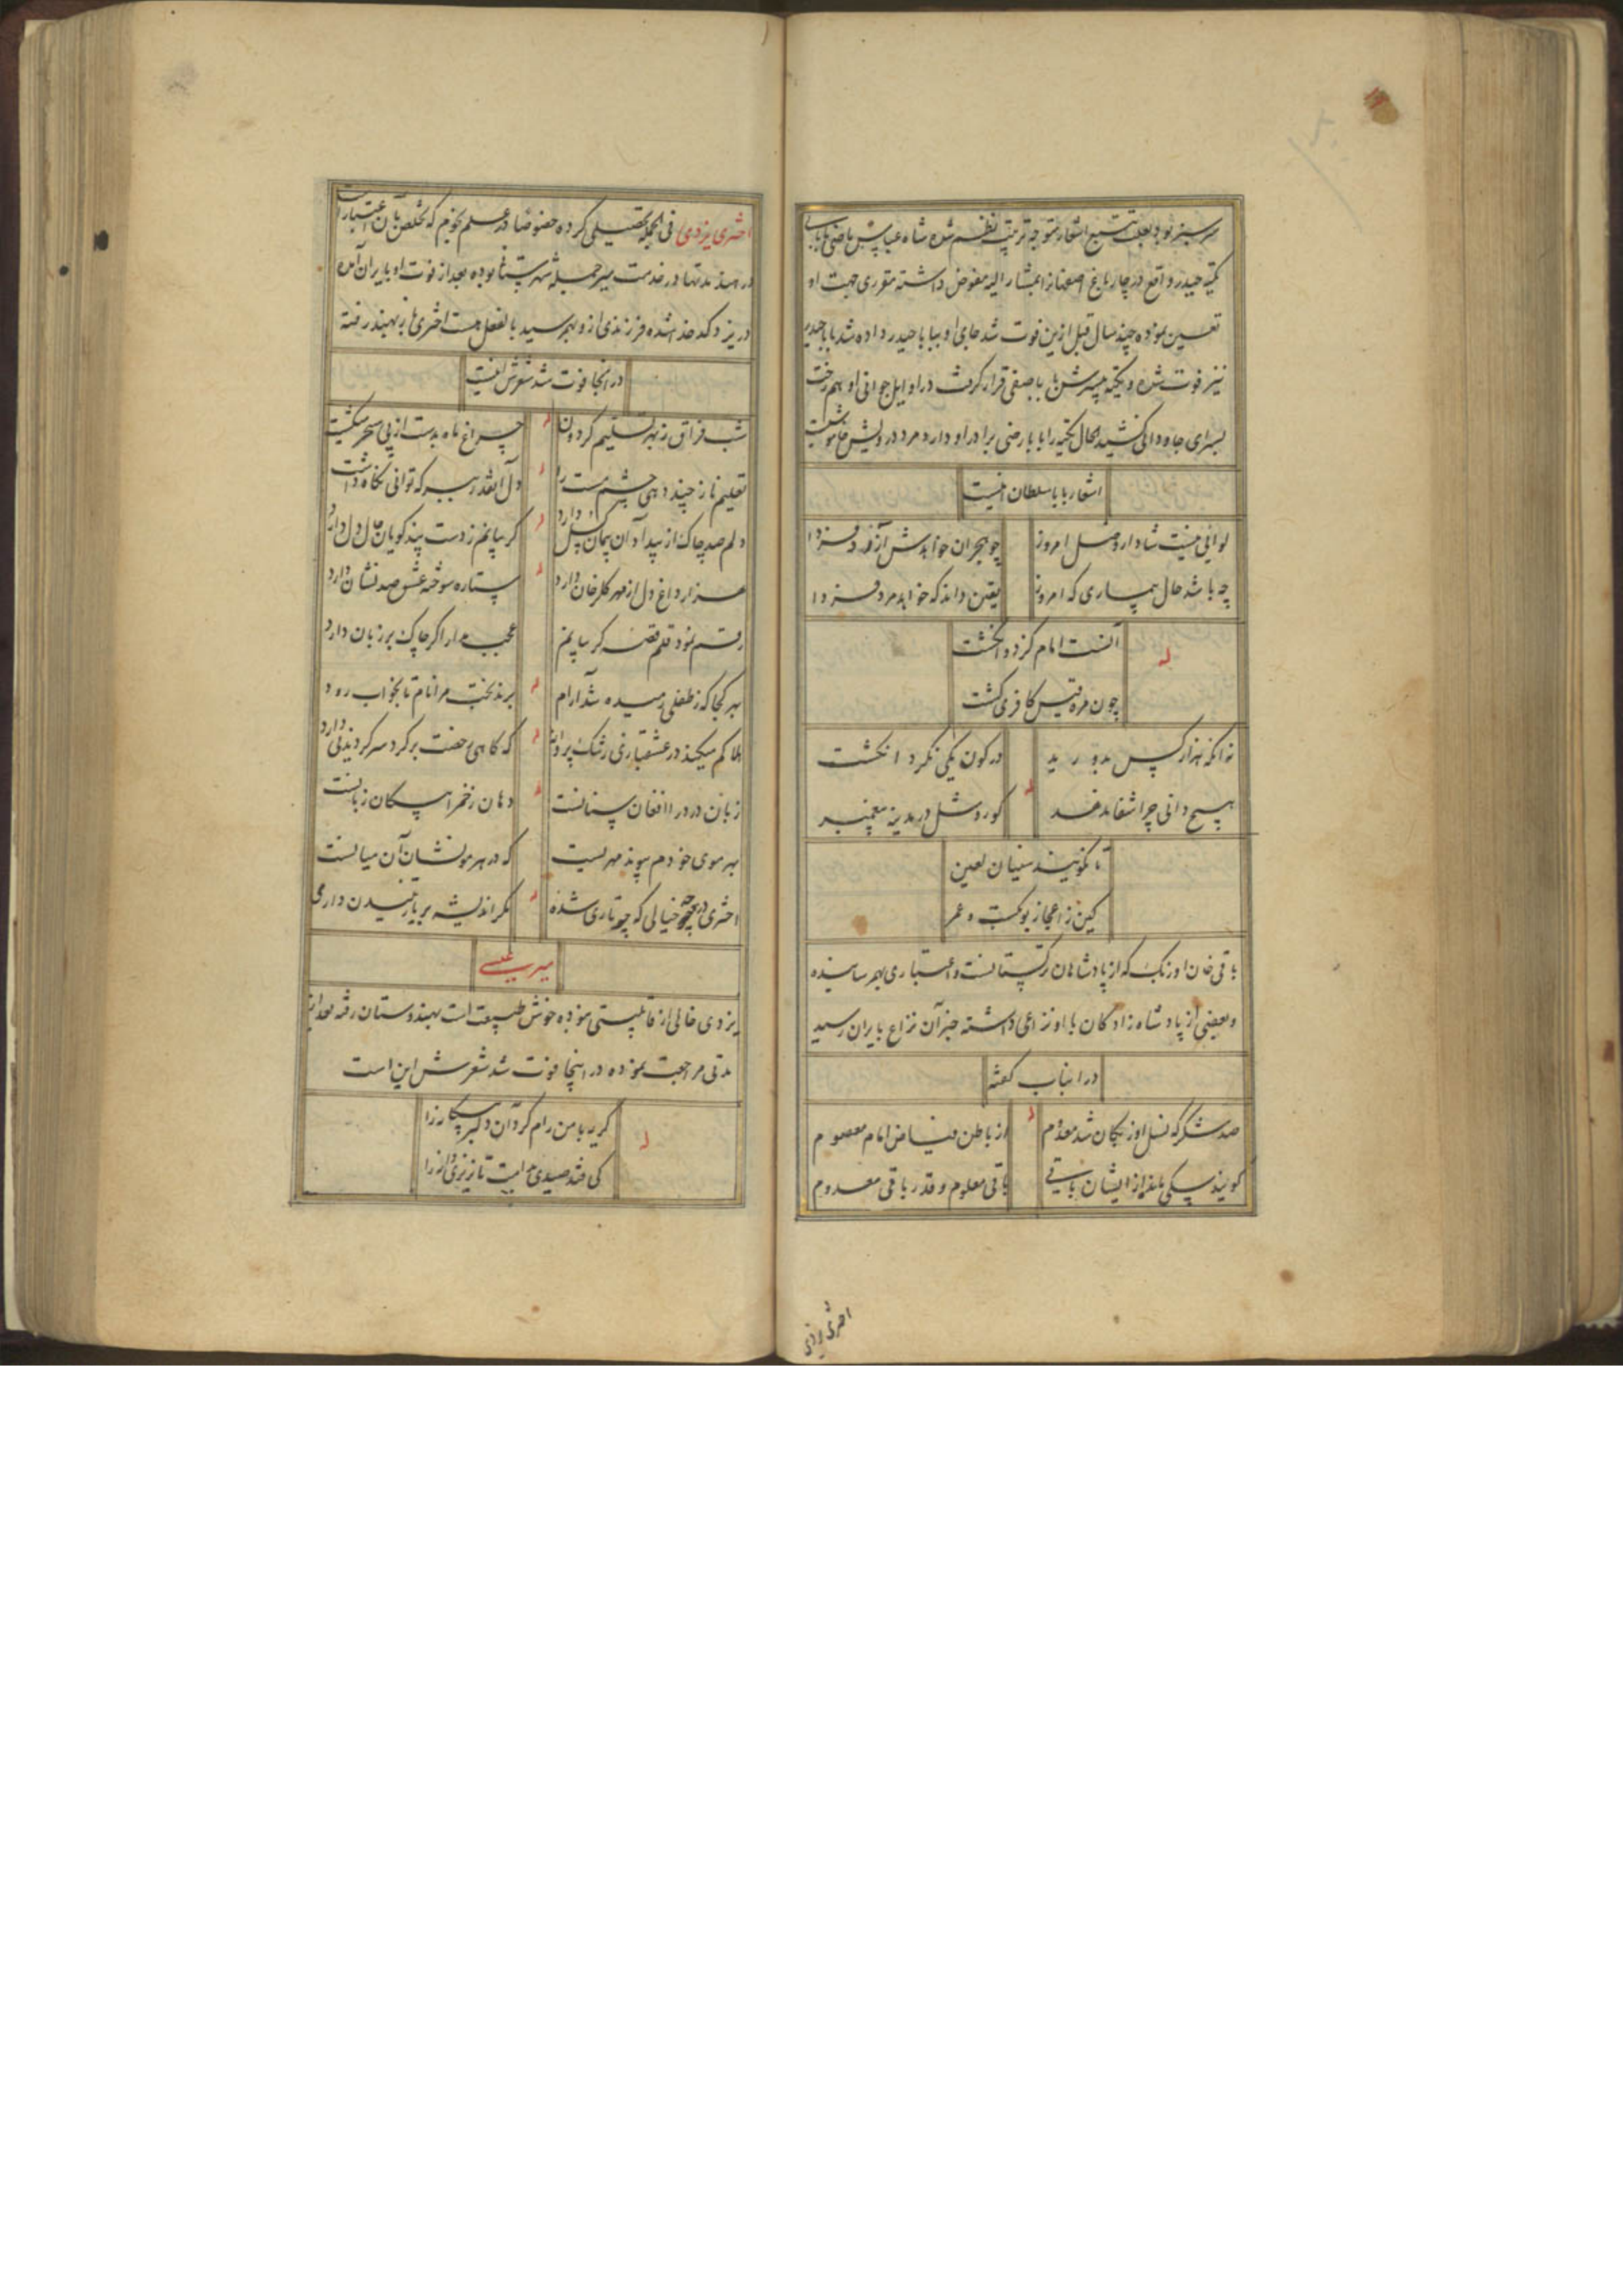 سرسبز بود بعلت تتبع اشعار متوجه ترتیب نظم شده شاه عباس ماضی بابایی
تکیه حیدر واقع در چارباغ اصفهانرا بمشارالیه مفوض داشته مقرری جهت او
تعیین نموده چند سال قبل ازین فوت شد جای او ببابا حیدر داده شد بابا حیدر
نیز فوت شده و تکیه بپسرش بابا صفی قرار گرفت در اوایل جوانی او هم رخت
بسرای جاودانی کشید الحال تکیه را بابا رضی برادر او دارد مرد درویش خاموشیست
اشعار بابا سلطان اینست
لوائی نیست شاد از وصل امروز
چو هجران خواهدش آزرد فردا
چه باشد حال بیماری که امروز
یقین داند که خواهد مرد فردا
له
آنست امام کز دو انگشت
چون مره قیس کافری کشت
نه آنکه هزار کس بدو رید
در کون یکی نکرد انگشت
له
هیچ دانی چرا شفا ندهد
کور و شل در مدینه پیغمبر
تا نگویند سنیان لعین
کین ز اعجاز بوبکست و عمر
باقی خان اوزبک که از پادشاهان ترکستانست و اعتباری بهم رسانیده
و بعضی از پادشاه زادگان با او نزاعی داشته خبر آن نزاع بایران رسید
در این باب گفته
صد شکر که نسل اوزبکان شد معدوم
از باطن فیاض امام معصوم
له
گویند سگی مانده از ایشان باقی
باقی معلوم و قدر باقی معدوم
اختری یزدی
اختری یزدی فی الجمله تحصیلی کرده خصوصا در علم نجوم که تخلص بآن اعتبار است
در هند مدتها در خدمت میر جمله شهرستانی بوده بعد از فوت او بایران آمده
در یزد کدخدا شده فرزندی ازو بهم رسید بالفعل هست اختری باز بهند رفته
در آنجا فوت شد شعرش اینست
شب فراق ز بهر تسلیم گردون
چراغ ماه بدست از پی سحر میگشت
له
تعلیم ناز چند دهی چشم مست را
دل آنقدر ببر که توانی نگاه داشت
له
دلم صد چاک از بیداد آن پیمان گسل دارد
گریبانم ز دست پندگویان حال دل دارد
له
هزار داغ دل از مهر گلرخان دارد
ستاره سوخته عشق صد نشان دارد
له
رقم نمود قلم قصه گریبانم
عجب مدار اگر چاک بر زبان دارد
بهر کجا که ز طفلی رمیده شد آرام
برند بخت مرا نام تا بخواب رود
له
هلاکم میکند در عشقبازی رشک پروانه
که گاهی رخصت برگرد سر گردیدنی دارد
له
زبان درد را افغان سنانست
دهان زخم را پیکان زبانست
له
بهر موی خودم پیوند مهریست
که در هر مو نشان آن میانست
اختری در چه خیالی که چو تاری شده
مگر اندیشه بر یار تنیدن داری
له
میر سیدعلی
یزدی خالی از قابلیتی نبوده خوش طبیعت است بهندوستان رفته بعد از
مدتی مراجعت نموده در اینجا فوت شد شعرش این است
له
گریه با من رام کرد آن دلبر بیگانه را
کی فتد صیدی بدامت تا نریزی دانه را